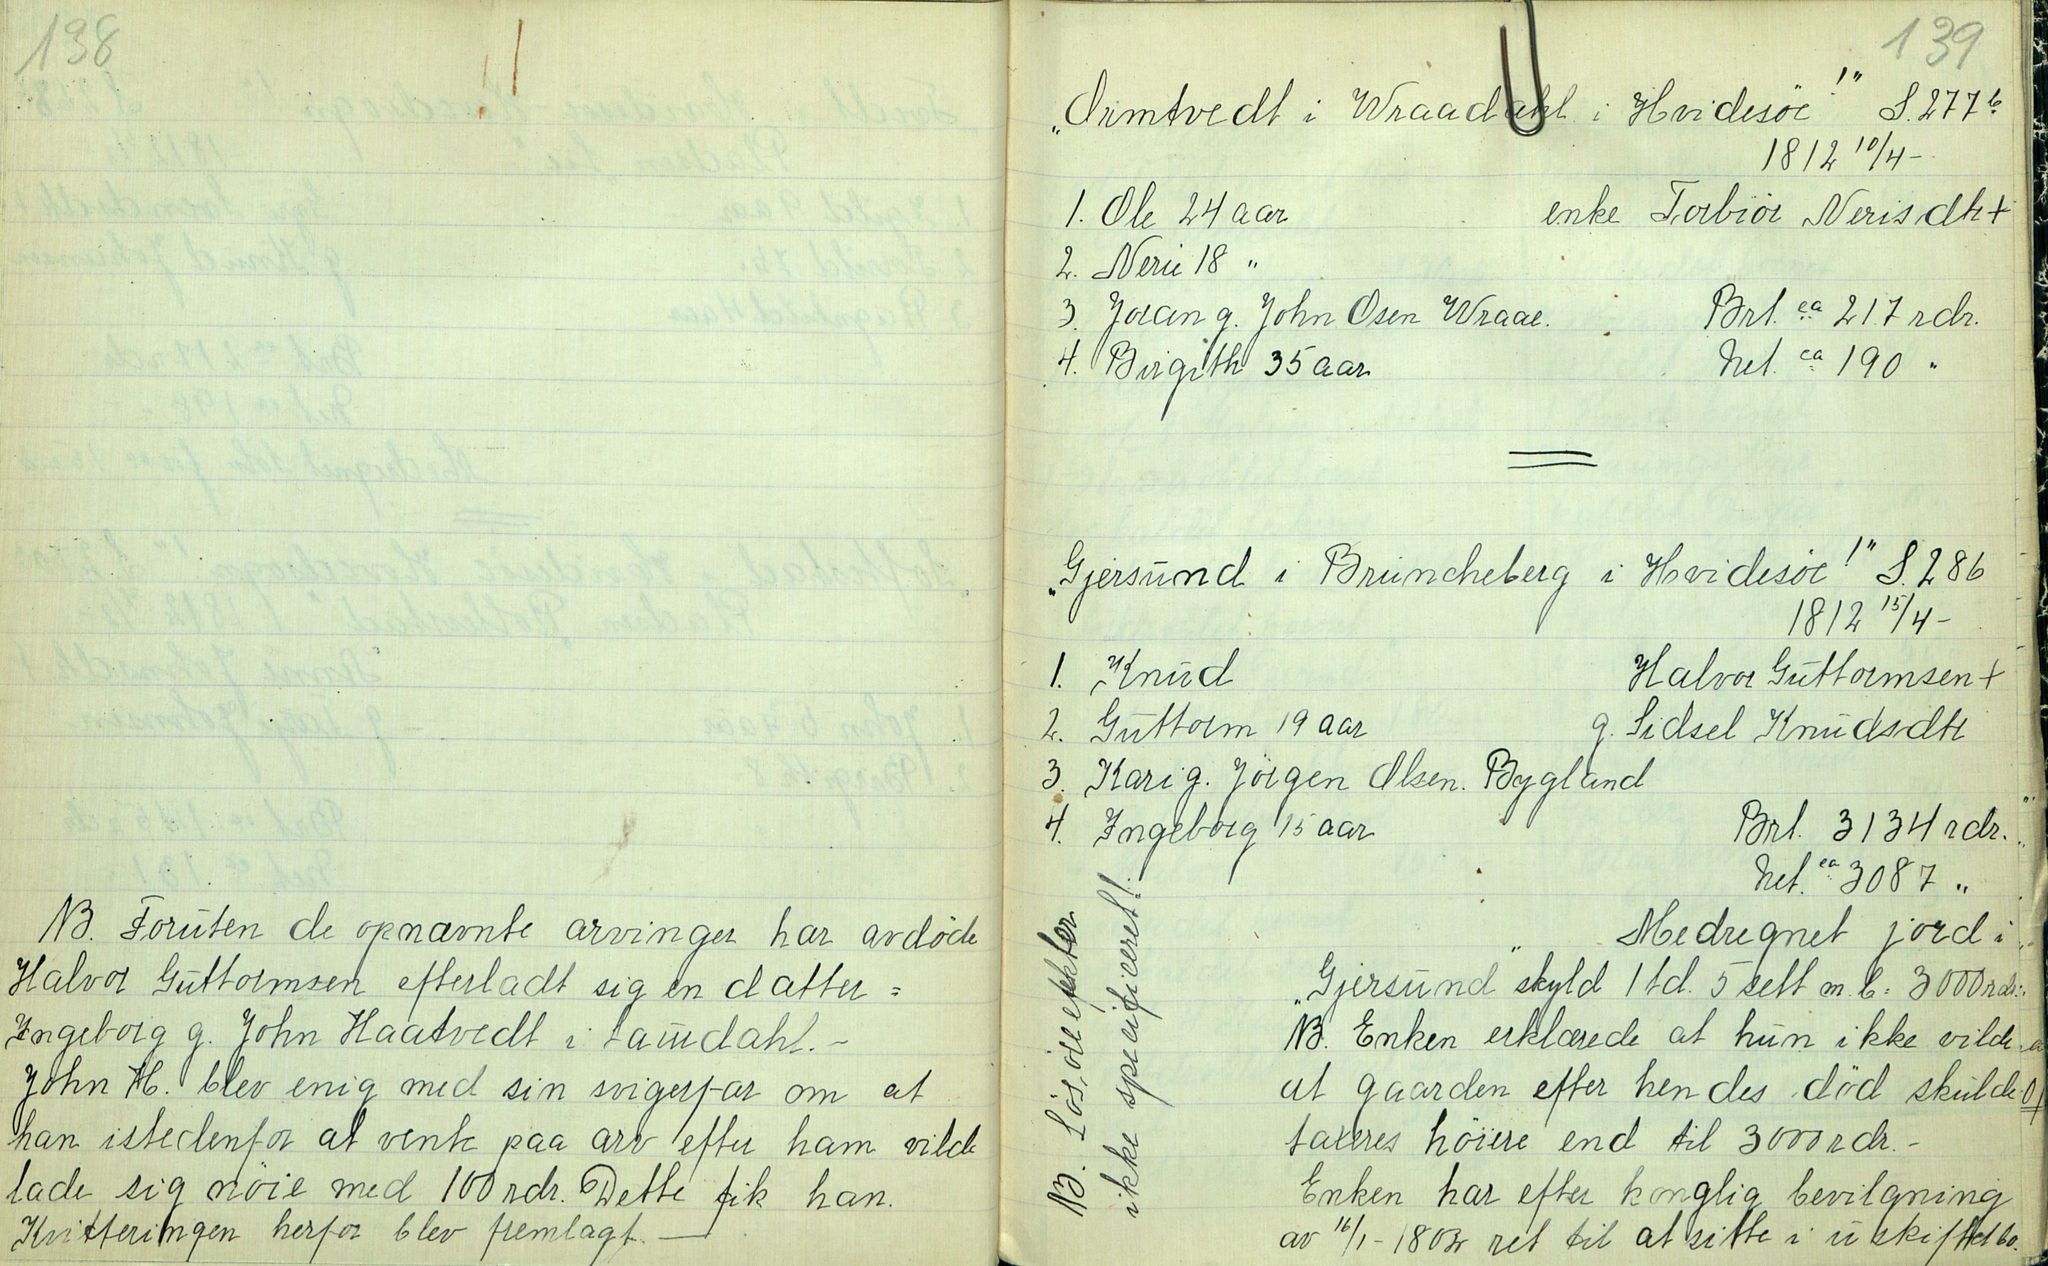 138
NB. Foruten de opnævnte arvinger har avdöde
Halvor Guttormsen efterladt sig en datter =
Ingeborg g. John Haatvedt i Laurdahl. -
John H. blev enig med sin svigerfar om at
han istedenfor at vente paa arv efter ham vilde
lade sig nöie med 100 rdr. Dette fik han.
Kvitteringen herfor blev fremlagt. —
139
"Ormtvedt i Wraadahl i Hvidesöe!" S. 277b
1812 10/4 -
1. Ole 24 aar enke Torbiör Nerisdtr +
2. Nerie 18 "
3. Joran g. John Osen Wraae. Brt. ca 217 rdr.
4. Birgith 35 aar Net. ca 190 "
"Gjersund i Bruncheberg i Hvidesöe!" S. 286
1812 15/4 -
1. Knud Halvor Guttormsen +
2. Guttorm 19 aar g. Sidsel Knudsdtr
3. Kari g. Jörgen Olsen Bygland
4. Ingeborg 15 aar Brt. 3134 rdr.
Net. ca 3087 "
Medregnet jord i
"Gjersund" skyld 1 td. 5 sett m.b. = 3000 rdr.
NB. Enken erklærede at hun ikke vilde
at gaarden efter hendes död skulde
taxeres höiere end til 3000 rdr. -
Enken har efter konglig bevilgning
av 16/1 - 1802 ret til at sitte i uskiftet bo.
NB. Lösöreeffekter
ikke specificeret!